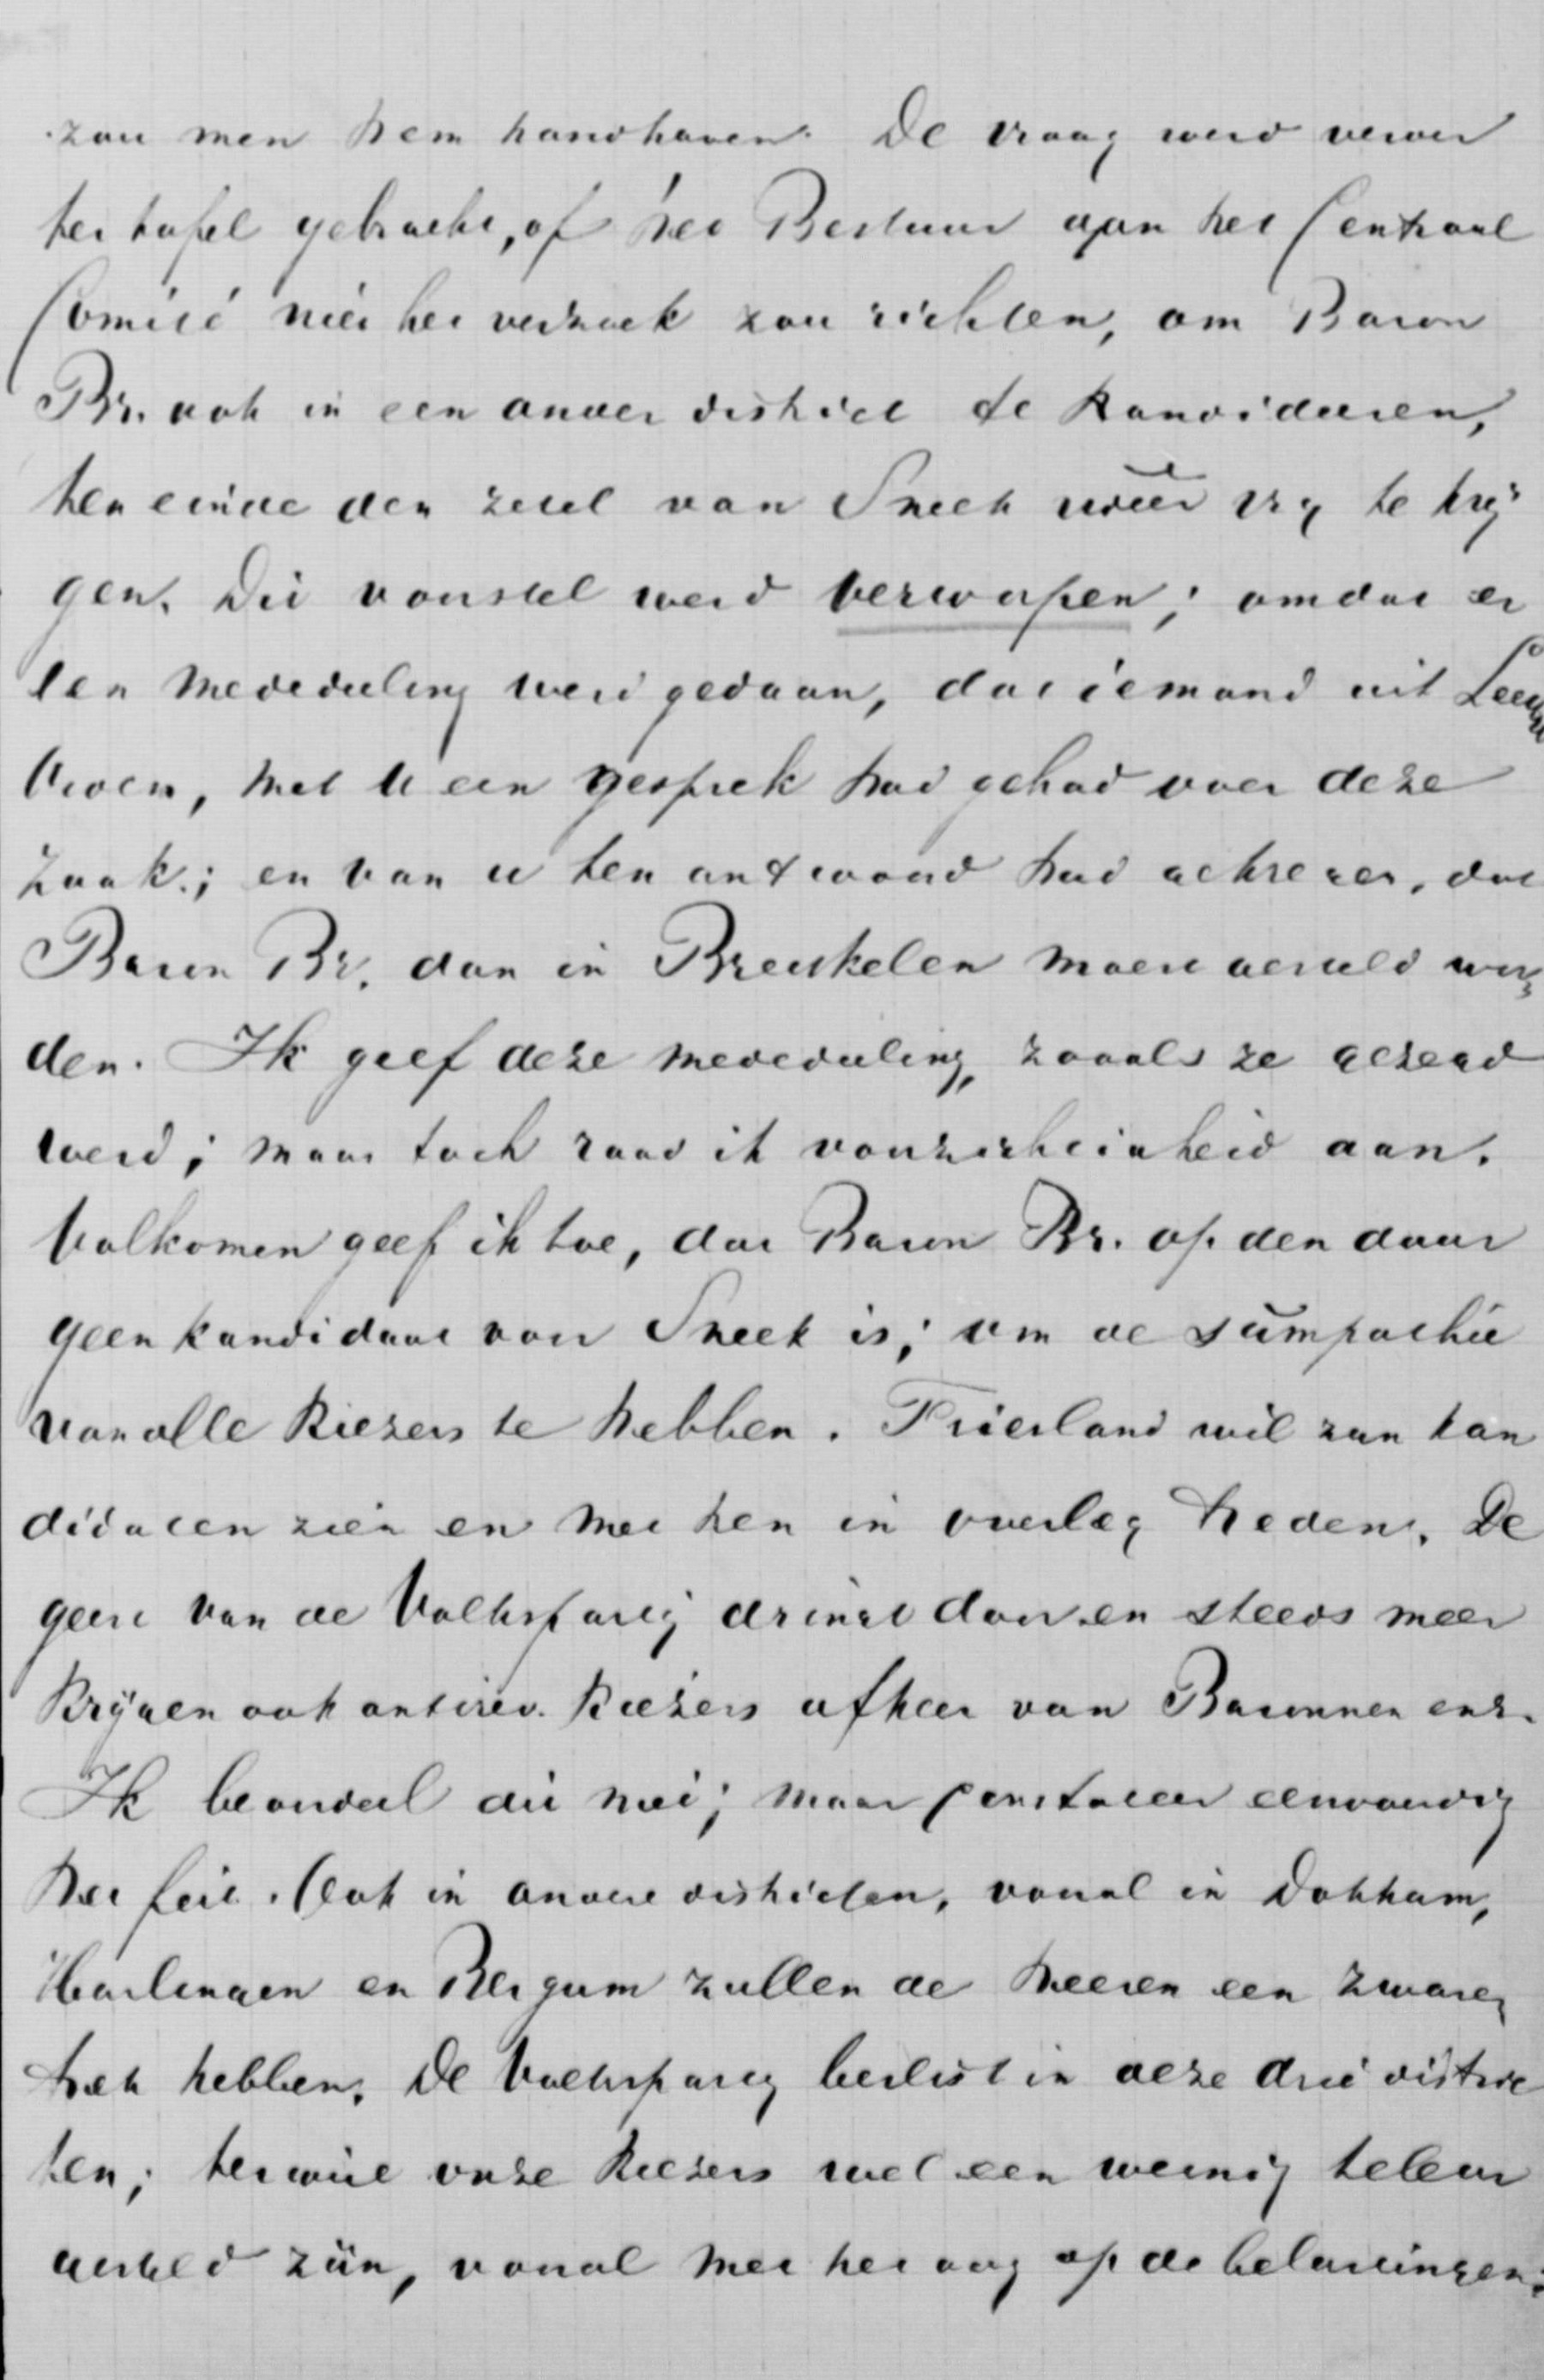 zou men hem handhaven. De vraag werd verder
ter tafel gebracht, of het Bestuur aan het Centraal
Comité niet het verzoek zou richten, om Baron
Br. ook in een ander district te kandideeren,
ten einde den zetel van Sneek weer vrij te krij
gen. Dit voorstel werd verworpen; omdat er
een mededeeling werd gedaan, dat iemand uit Leeu
warden, met U een gesprek had gehad over deze
zaak; en van u ten antwoord had gekregen, dat
Baron Br. dan in Breukelen moest gesteld wor
den. Ik geef deze mededeeling, zooals ze gezegd
werd; maar toch raad ik voorzichtigheid aan.
Volkomen geef ik toe, dat Baron Br. op den duur
geen kandidaat voor Sneek is; om de sympathie
van alle kiezers te hebben. Friesland wil zijn kan
didaten zien en met hen in overleg treden. De
geest van de Volkspartij dringt door en steeds meer
krijgen ook antirev. kiezers afkeer van Baronnen enz.
Ik beoordeel dit niet; maar constateer eenvoudig
het feit. Ook in andere districten, vooral in Dokkum,
Harlingen en Bergum zullen de heeren een zware
trek hebben. De Volkspartij beslist in deze drie distric
ten; terwijl onze kiezers wel een weinig teleur
gesteld zijn, vooral met het oog op de belastingen.